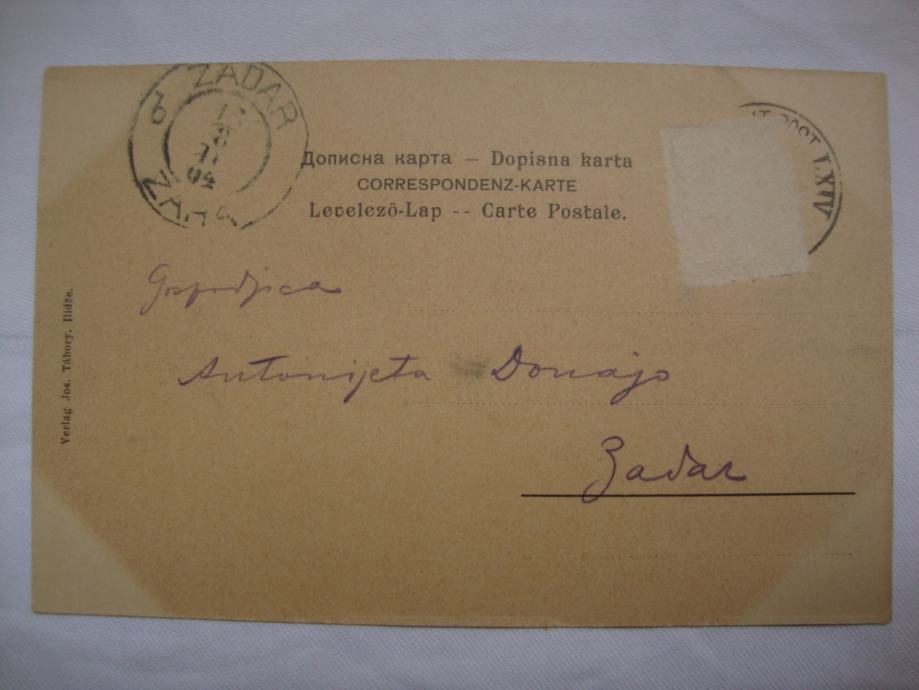 ZADAR
ZARA
Дописна карта – Dopisna karta
CORRESPONDENZ-KARTE
Levelező-Lap -- Carte Postale.
Verlag Jos. Tábory, Ilidže.
Gospodjica
Antonijeta Donajo
Zadar